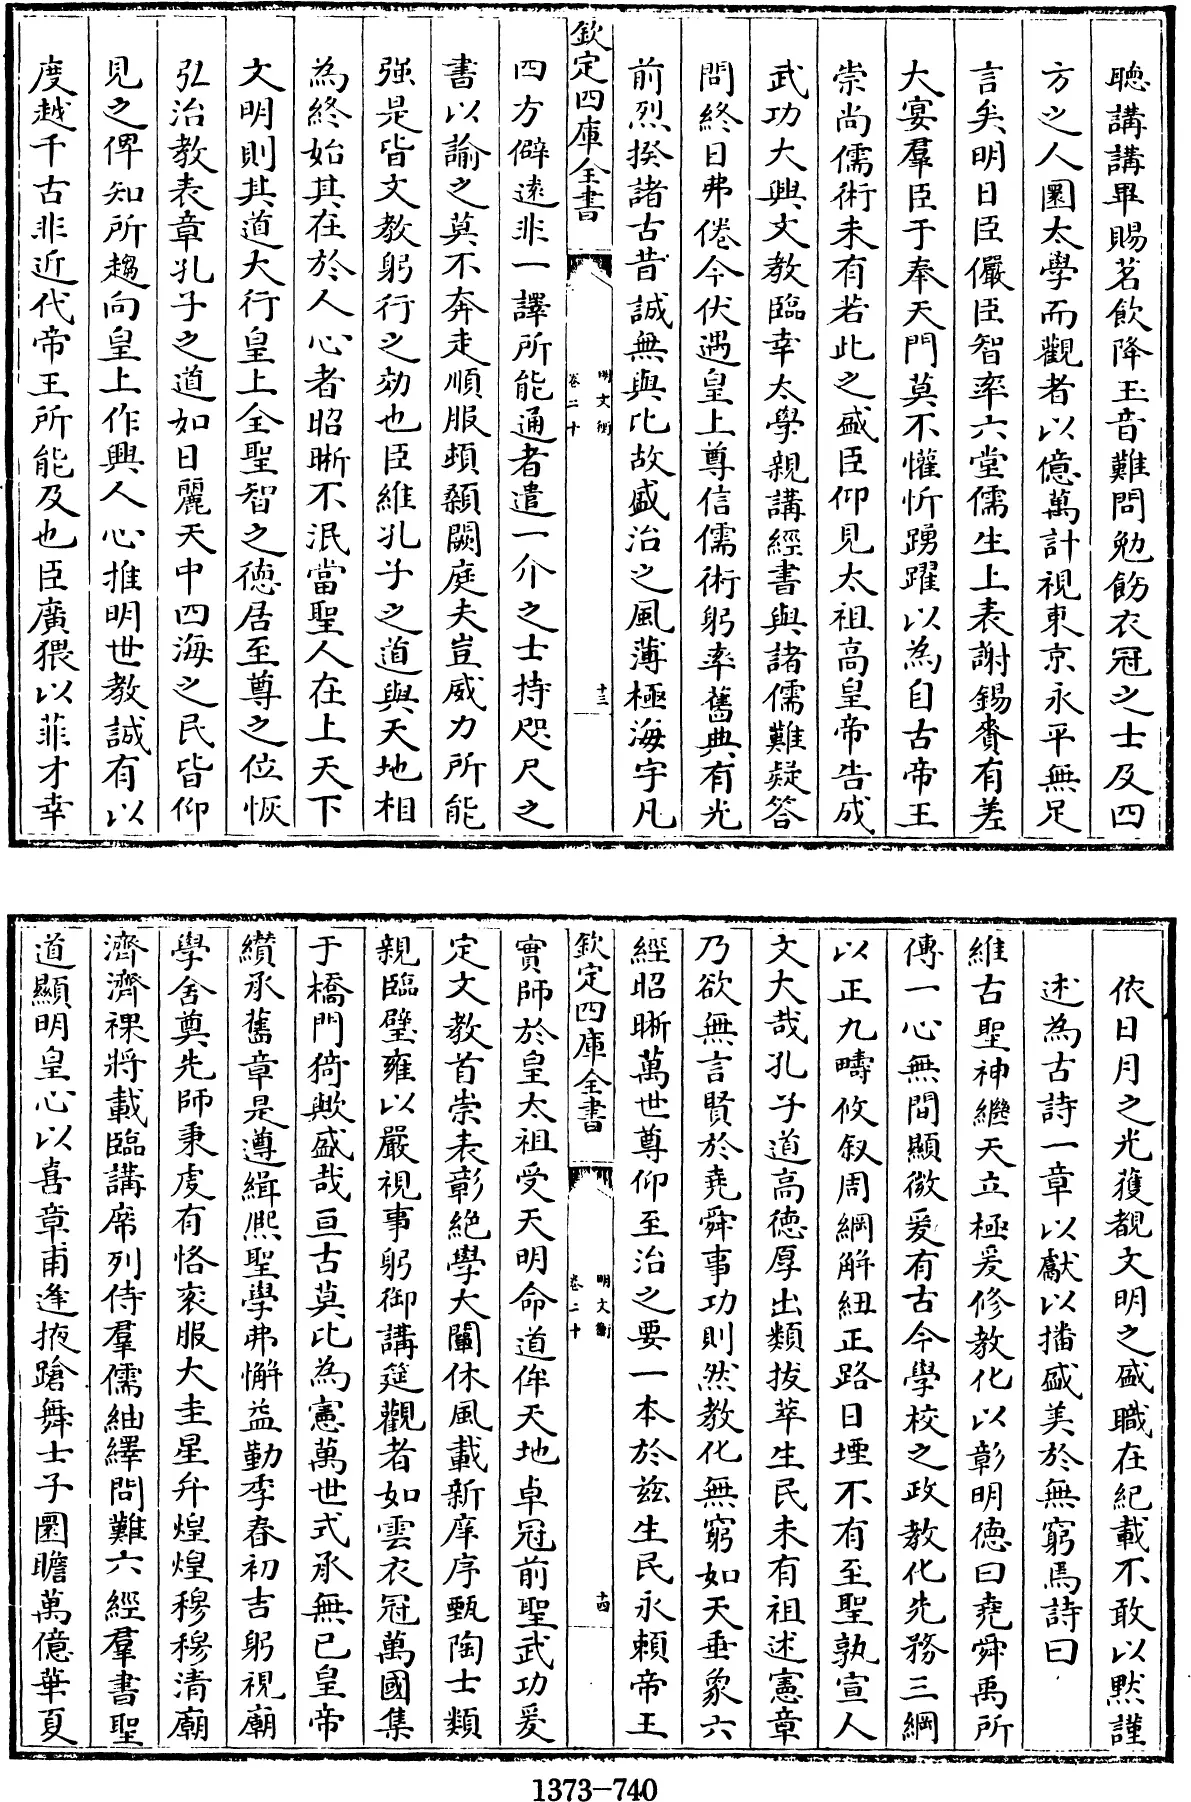 聽講講畢賜茗飲降玉音難問勉飭衣冠之士及四
方之人圜太學而觀者以億萬計視東京永平無足
言矣明日臣儼臣智率六堂儒生上表謝錫賚有差
大宴羣臣于奉天門莫不懽忻踴躍以為自古帝王
崇尚儒術未有若此之盛臣仰見太祖高皇帝告成
武功大興文教臨幸太學親講經書與諸儒難疑答
問終日弗倦今伏遇皇上尊信儒術躬率舊典有光
前烈揆諸古昔誠無與比故盛治之風薄極海宇凡
欽定四庫全書
明文衡
卷二十
十三
四方僻遠非一譯所能通者遣一介之士持咫尺之
書以諭之莫不奔走順服頓顙闕庭夫豈威力所能
强是皆文教躬行之効也臣維孔子之道與天地相
為終始其在於人心者昭晰不泯當聖人在上天下
文明則其道大行皇上全聖智之德居至尊之位恢
弘治教表章孔子之道如日麗天中四海之民皆仰
見之俾知所趨向皇上作興人心推明世教誠有以
度越千古非近代帝王所能及也臣廣猥以菲才幸
依日月之光獲覩文明之盛職在紀載不敢以黙謹
述為古詩一章以獻以播盛美於無窮焉詩曰
維古聖神繼天立極爰修教化以彰明德曰堯舜禹所
傳一心無間顯微爰有古今學校之政教化先務三綱
以正九疇攸叙周綱解紐正路日堙不有至聖孰宣人
文大哉孔子道高德厚出類拔萃生民未有祖述憲章
乃欲無言賢於堯舜事功則然教化無窮如天垂象六
經昭晰萬世尊仰至治之要一本於兹生民永賴帝王
欽定四庫全書
明文衡
卷二十
十四
實師於皇太祖受天明命道侔天地卓冠前聖武功爰
定文教首崇表彰絶學大闡休風載新庠序甄陶士類
親臨璧雍以嚴視事躬御講筵觀者如雲衣冠萬國集
于橋門猗歟盛哉亘古莫比為憲萬世式承無已皇帝
纘承舊章是遵緝熙聖學弗懈益勤季春初吉躬視廟
學舍奠先師秉虔有恪衮服大圭星弁煌煌穆穆清廟
濟濟祼將載臨講席列侍羣儒紬繹問難六經羣書聖
道顯明皇心以喜章甫逢掖蹌舞士子圜瞻萬億華夏
1373-740